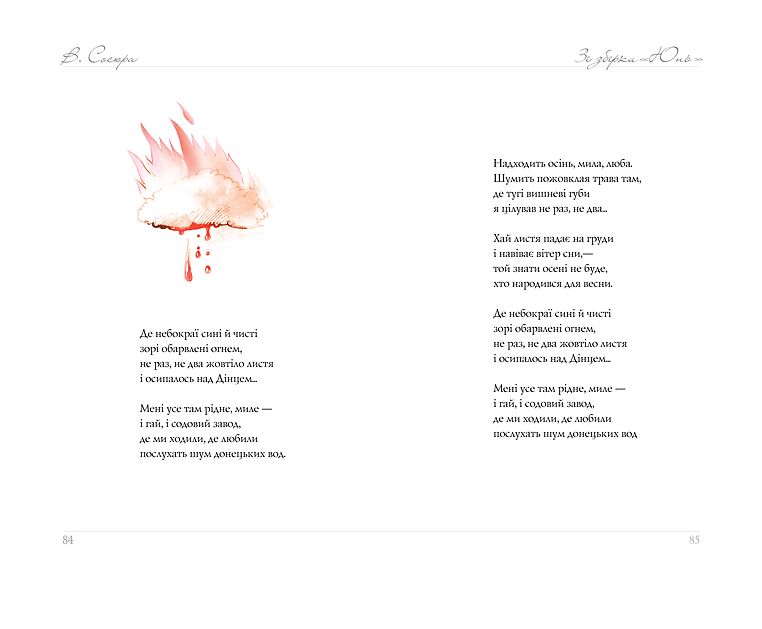 В. Сосюра
Де небокраї сині й чисті
зорі обарвлені огнем,
не раз, не два жовтіло листя
і осипалось над Дінцем...
Мені усе там рідне, миле —
і гай, і содовий завод,
де ми ходили, де любили
послухать шум донецьких вод.
84
Зі збірки «Юнь»
Надходить осінь, мила, люба.
Шумить пожовклая трава там,
де тугі вишневі губи
я цілував не раз, не два...
Хай листя падає на груди
і навіває вітер сни,—
той знати осені не буде,
хто народився для весни.
Де небокраї сині й чисті
зорі обарвлені огнем,
не раз, не два жовтіло листя
і осипалось над Дінцем...
Мені усе там рідне, миле —
і гай, і содовий завод,
де ми ходили, де любили
послухать шум донецьких вод
85